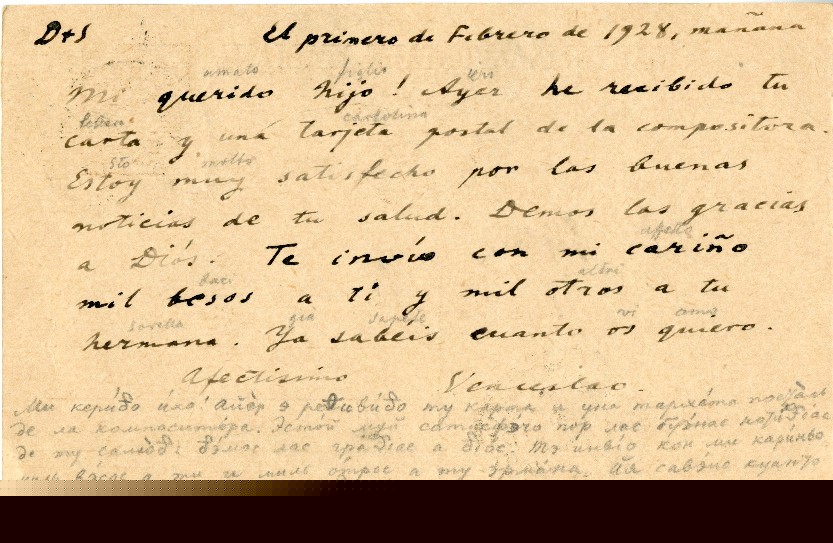 D+S El primero de Febrero de 1928, mañana
amato figlio ieri
Mi querido hijo! Ayer he recibido tu
cartolina
carta y una tarjeta postal de la compositora.
sto molto
Estoy muy satisfecho por las buenas
noticias de tu salud. Demos las gracias
affetto
a Diós. Te invío con mi cariño
baci altri
mil besos a ti y mil otros a tu
sorella già sapete vi amo
hermana. Ya sabéis cuanto os quiero.
Afectísimo Venceslao.
Ми керидо ихо! Айер э ресивидо ту карта и уна тархета посталь
де ла композитора. Эстой муй сатисфечо пор лас буэнас
де ту салюд. Дэмос лас грасиас а Диос. Тэ инвио кон ми кариньо
миль бэсос а ти и миль отрос а ту эрмана. Йа савэис куанто